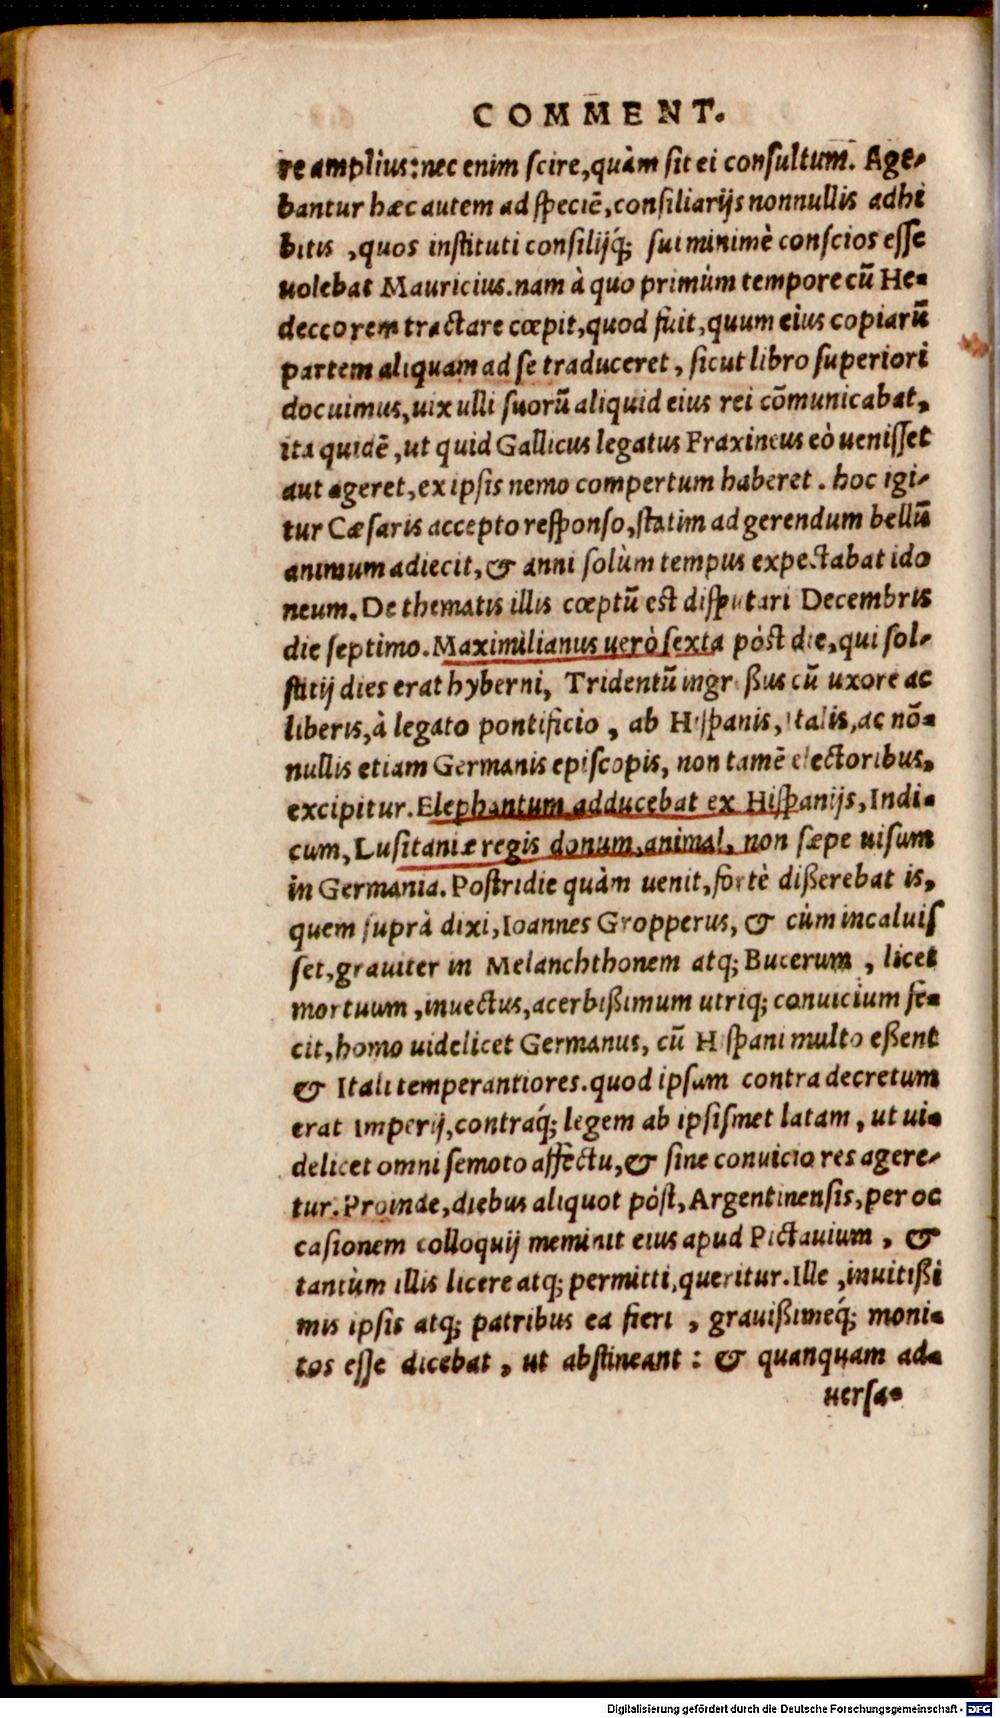 COMMENT.
re amplius: nec enim scire, quàm sit ei consultum. Age-
bantur hæc autem ad speciẽ, consiliarijs nonnullis adhi
bitis , quos instituti consilijq́; sui minimè conscios esse
uolebat Mauricius. nam à quo primùm tempore cũ He-
deccorem tractare cœpit, quod fuit, quum eius copiarũ
partem aliquam ad se traduceret , sicut libro superiori
docuimus, uix ulli suorũ aliquid eius rei cõmunicabat,
ita quidẽ , ut quid Gallicus legatus Fraxineus eò uenisset
aut ageret, ex ipsis nemo compertum haberet . hoc igi-
tur Cæsaris accepto responso, statim ad gerendum bellũ
animum adiecit, & anni solùm tempus expectabat ido
neum. De thematis illis cœptũ est disputari Decembris
die septimo. Maximilianus uerò sexta pòst die, qui sol-
stitij dies erat hyberni, Tridentũ ingressus cũ uxore ac
liberis, à legato pontificio , ab Hispanis, Italis, ac nõ-
nullis etiam Germanis episcopis, non tamẽ electoribus,
excipitur. Elephantum adducebat ex Hispanijs, Indi-
cum, Lusitaniæ regis donum, animal, non sæpe uisum
in Germania. Postridie quàm uenit, fortè disserebat is,
quem suprà dixi, Ioannes Gropperus, & cùm incaluis
set, grauiter in Melanchthonem atq; Bucerum , licet
mortuum , inuectus, acerbißimum utriq; conuicium fe-
cit, homo uidelicet Germanus, cũ Hispani multo eßent
& Itali temperantiores. quod ipsum contra decretum
erat imperij, contraq́; legem ab ipsismet latam , ut ui-
delicet omni semoto affectu, & sine conuicio res agere-
tur. Proinde, diebus aliquot pòst, Argentinensis, per oc
casionem colloquij meminit eius apud Pictauium , &
tantùm illis licere atq; permitti, queritur. Ille , inuitißi
mis ipsis atq; patribus ea fieri , grauißimeq́; moni-
tos esse dicebat , ut abstineant : & quanquam ad-
uersa-
Digitalisierung gefördert durch die Deutsche Forschungsgemeinschaft - DFG